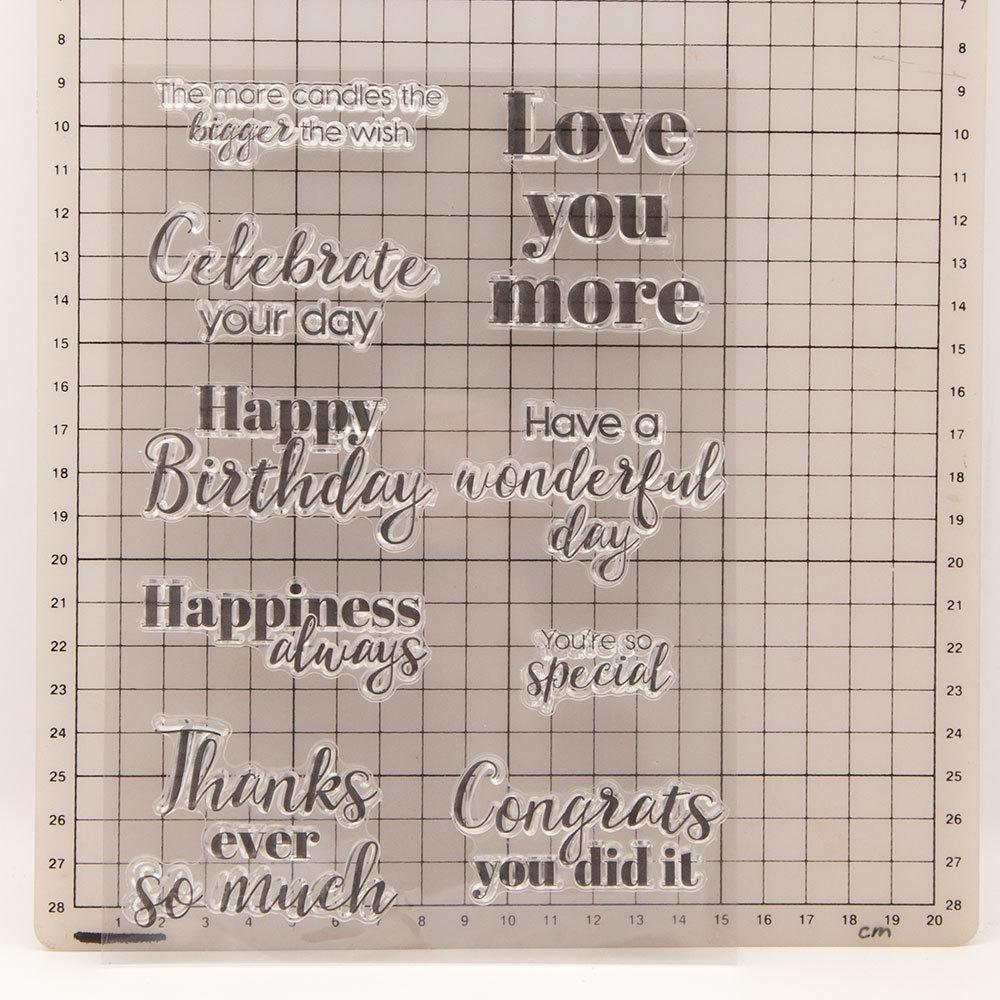 The more candles the
bigger the wish
Celebrate
your day
Happy
Birthday
Happiness
always
Thanks
ever
so much
Love
you
more
Have a
wonderful
day
You're so
special
Congrats
you did it
7
8
9
10
11
12
13
14
15
16
17
18
19
20
21
22
23
24
25
26
27
28
7
8
9
10
11
12
13
14
15
16
17
18
19
20
21
22
23
24
25
26
27
28
1 2 3 4 5 6 7 8 9 10 11 12 13 14 15 16 17 18 19 20
cm